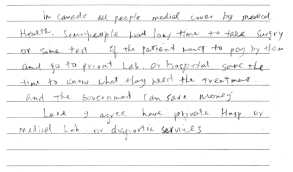 in canada all people medical cover by medical
Health, Some people had long time to take surgry
or some test if the patient want to pay by them
and go to privat Lab. or hospital save the
time to know what they need the treatment.
and the Government can save money
I agree have private Hosp. or
medical Lab. or diagnostic services